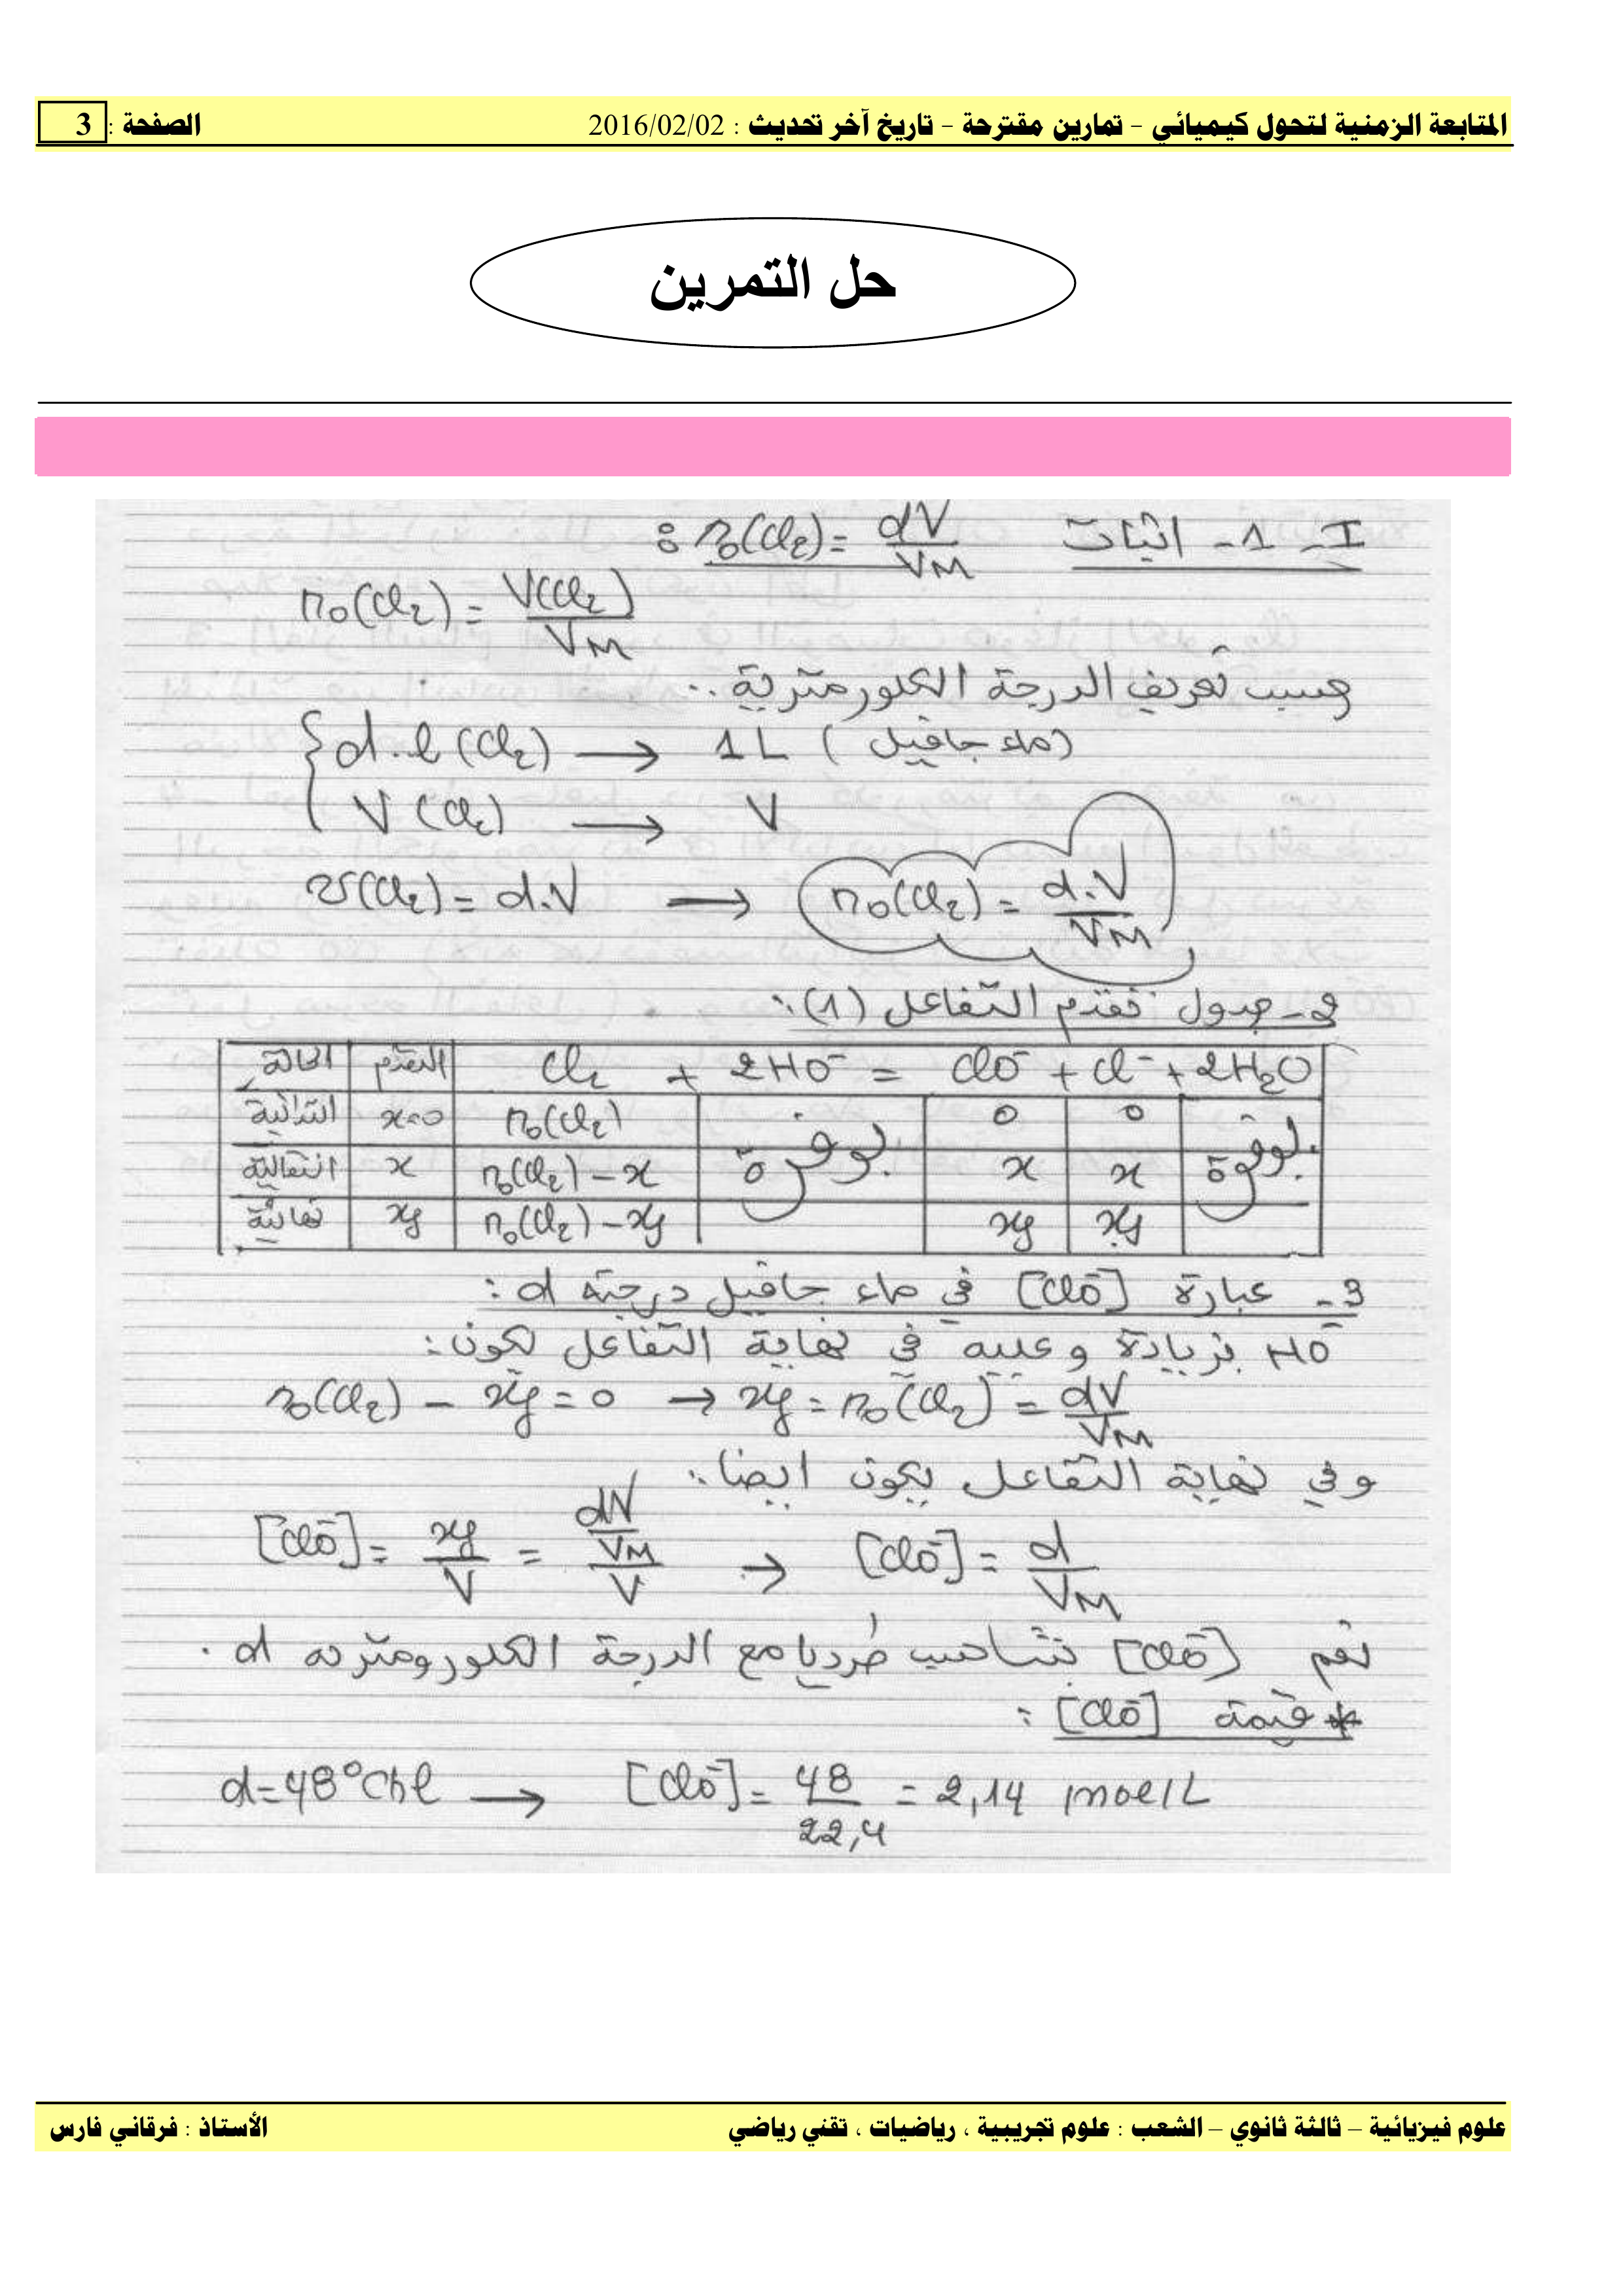 المتابعة الزمنية لتحول كيميائي – تمارين مقترحة – تاريخ آخر تحديث : 2016/02/02 الصفحة : 3
حل التمرين
I - 1 - اثبات n₀(Cl₂) = dV / VM :
n₀(Cl₂) = V(Cl₂) / VM
حسب تعريف الدرجة الكلورمترية ..
d.l (Cl₂) → 1L (ماء جافيل)
V (Cl₂) → V
v(Cl₂) = d.V → n₀(Cl₂) = d.V / VM
2 - جدول تقدم التفاعل (1) :
الحالة التقدم Cl₂ + 2HO⁻ = ClO⁻ + Cl⁻ + 2H₂O
ابتدائية x=0 n₀(Cl₂) بوفرة 0 0 بوفرة
انتقالية x n₀(Cl₂) – x x x
نهائية xf n₀(Cl₂) – xf xf xf
3 - عبارة [ClO⁻] في ماء جافيل درجته d :
HO⁻ بزيادة وعليه في نهاية التفاعل يكون :
n₀(Cl₂) – xf = 0 → xf = n₀(Cl₂) = dV / VM
وفي نهاية التفاعل يكون ايضا :
[ClO⁻] = xf / V = (dV / VM) / V → [ClO⁻] = d / VM
نعم [ClO⁻] تتناسب طرديا مع الدرجة الكلورومترية d .
* قيمة [ClO⁻] :
d = 48°Chl → [ClO⁻] = 48 / 22,4 = 2,14 mol/L
علوم فيزيائية – ثالثة ثانوي – الشعب : علوم تجريبية ، رياضيات ، تقني رياضي الأستاذ : فرقاني فارس